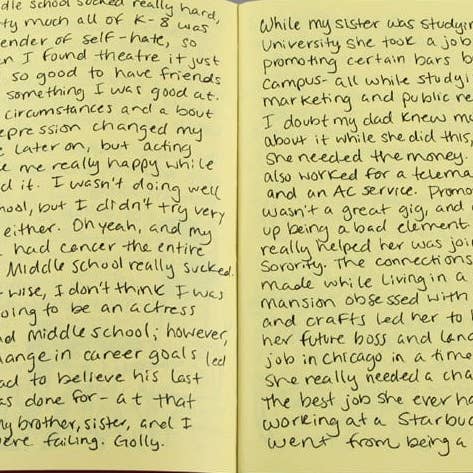 ddle school sucked really hard,
ty much all of K-8 was
ender of self-hate, so
n I found theatre it just
so good to have friends
something I was good at.
circumstances and a bout
epression changed my
e later on, but acting
e me really happy while
d it. I wasn't doing well
hool, but I didn't try very
either. Oh yeah, and my
had cancer the entire
Middle school really sucked.
-wise, I don't think I was
oing to be an actress
d middle school; however,
hange in career goals led
ad to believe his last
as done for - at that
my brother, sister, and I
were failing. Golly.
While my sister was studyin
University she took a job
promoting certain bars b
campus - all while studyi
marketing and public re
I doubt my dad knew mu
about it while she did this,
she needed the money.
also worked for a telema
and an AC service. Promo
wasn't a great gig, and
up being a bad element
really helped her was join
sorority. The connections
made while living in a
mansion obsessed with
and crafts led her to h
her future boss and land
job in Chicago in a time
she really needed a cha
the best job she ever ha
working at a Starbuc
went from being a